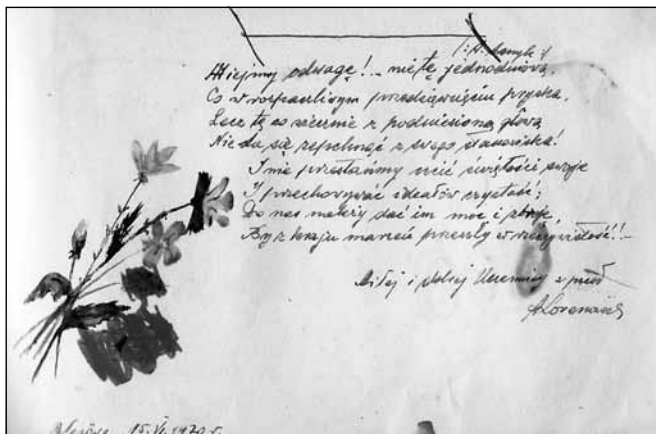 /:A. Asnyk:/
Miejmy odwagę! – nie tę jednodniową,
Co w rozpaczliwym przedsięwzięciu pryska,
Lecz tę co wiecznie z podniesioną głową
Nie da się zepchnąć z swego stanowiska!
I nie przestańmy czcić świętości swoje
I przechowywać ideałów czystość;
Do nas należy dać im moc i zbroję,
By z kraju marzeń przeszły w rzeczywistość!! –
Miłej i dobrej Uczennicy z
15.VI.1920 r.